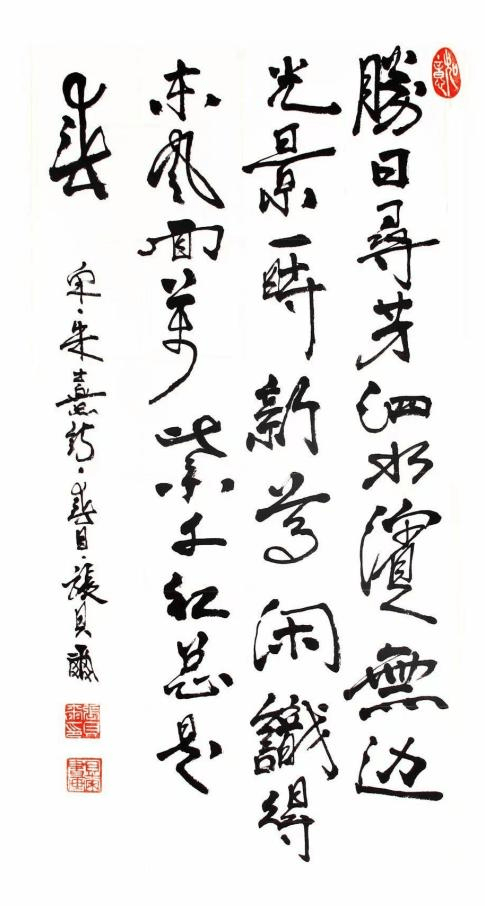 勝日尋芳泗水濱無边
光景一時新等闲識得
东风面萬紫千红总是
春
宋·朱熹詩·春日·張貝爾